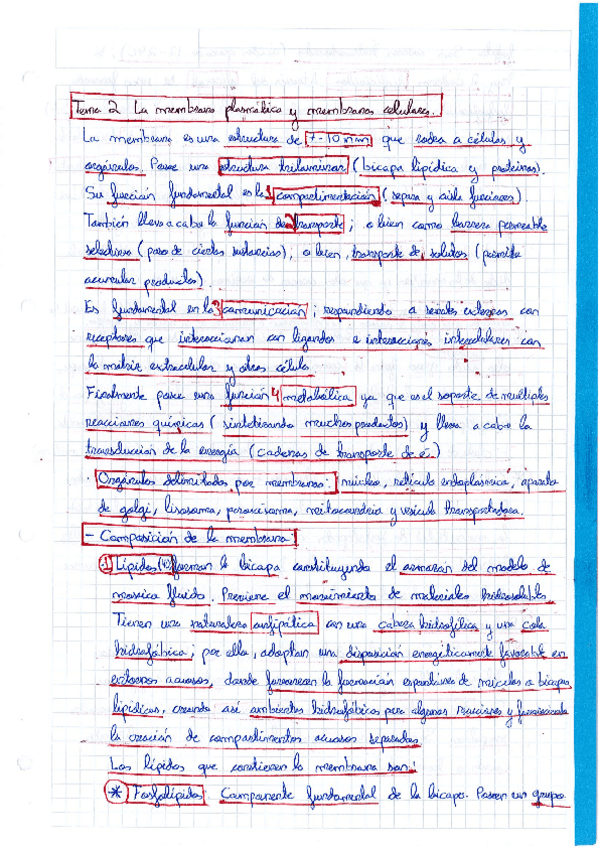 Tema 2. La membrana plasmática y membranas celulares.
La membrana es una estructura de 7-10 nm que rodea a células y
orgánulos. Posee una estructura trilaminar (bicapa lipídica y proteínas).
Su función fundamental es la 1 compartimentación (separa y aísla funciones).
También lleva a cabo la función de 2 transporte; o bien como barrera permeable
selectiva (paso de ciertas sustancias), o bien, transporte de solutos (permite
acumular productos)
Es fundamental en la 3 comunicación; respondiendo a señales externas con
receptores que interaccionan con ligandos e interacciones intercelulares con
la matriz extracelular y otras célula
Finalmente posee una función 4 metabólica ya que es el soporte de múltiples
reacciones químicas (sintetizando muchos productos) y lleva a cabo la
transducción de la energía (cadenas de transporte de e-)
Orgánulos delimitados por membrana: núcleo, retículo endoplásmico, aparato
de golgi, lisosoma, peroxisoma, mitocondria y vesícula transportadora.
- Composición de la membrana:
-1 Lípidos forman la bicapa constituyendo el armazón del modelo de
mosaico fluido. Previene el movimiento de materiales hidrosolubles
Tienen una naturaleza anfipática con una cabeza hidrofílica y una cola
hidrofóbica; por ello, adoptan una disposición energéticamente favorable en
entornos acuosos, donde favorecen la formación espontánea de micelas o bicapas
lipídicas, creando así ambientes hidrofóbicos para algunas reacciones y
la creación de compartimentos acuosos separados
Los lípidos que contienen la membrana son:
* Fosfolípidos. Componente fundamental de la bicapa. Poseen un grupo